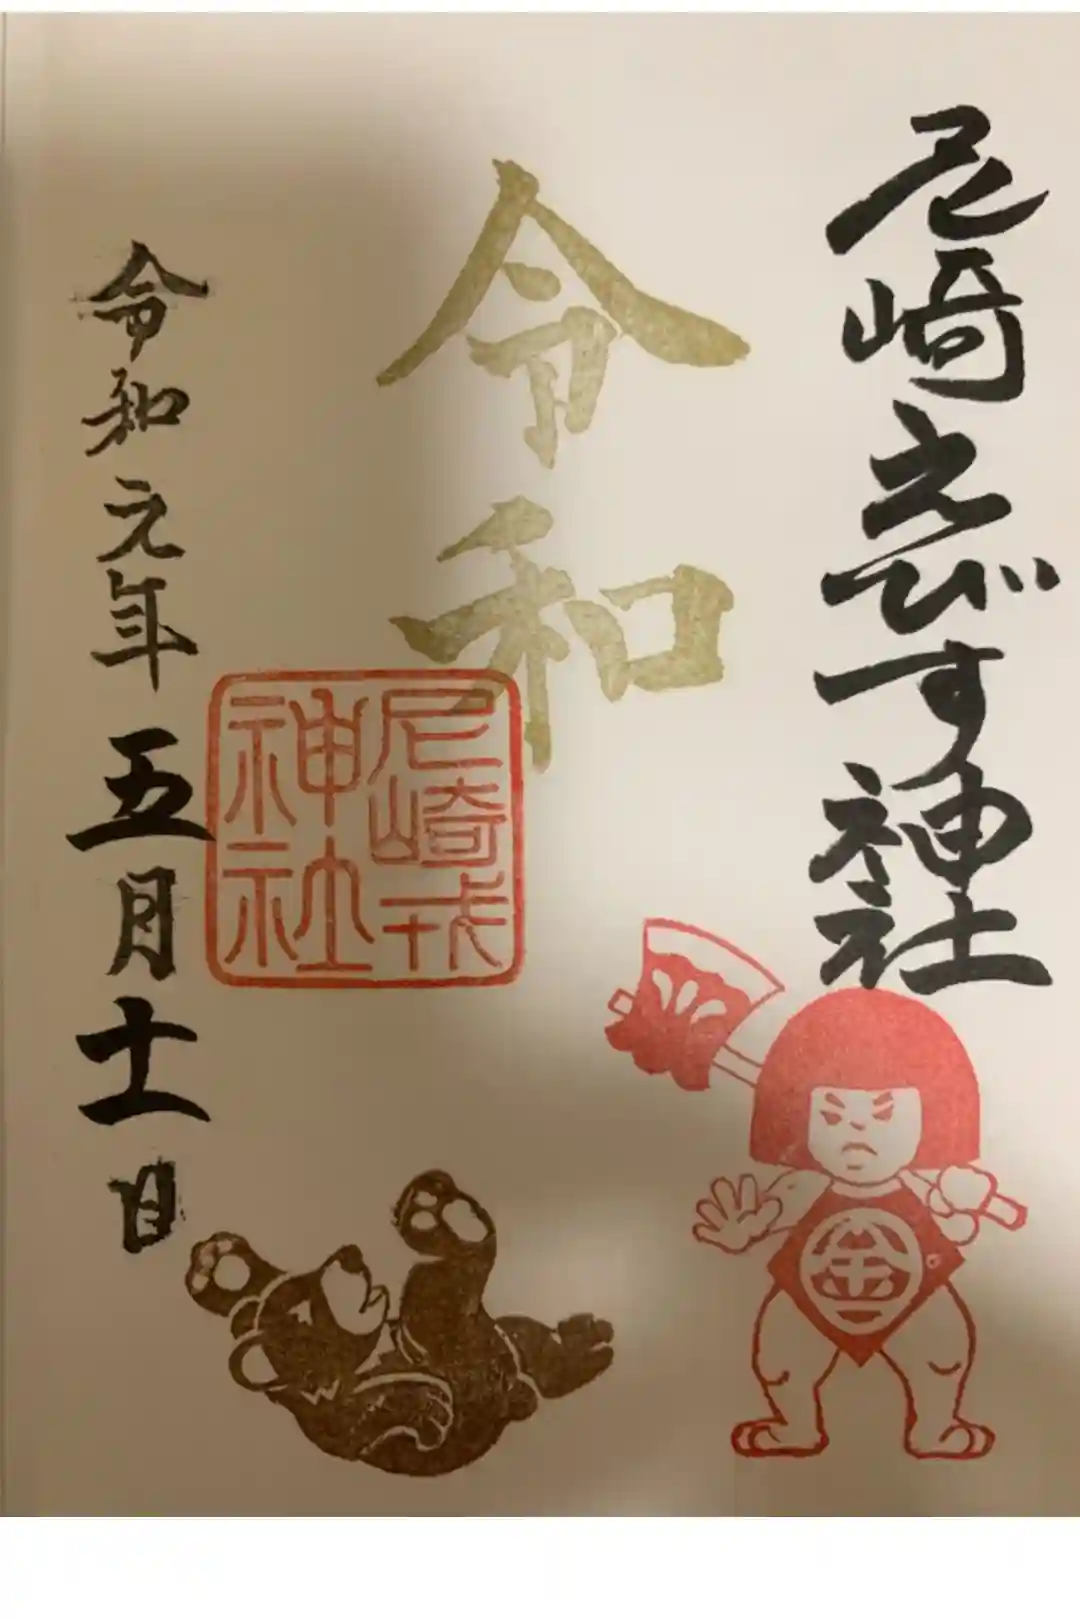 尼崎えびす神社
令和
尼崎戎
神社
令和元年五月十一日
金